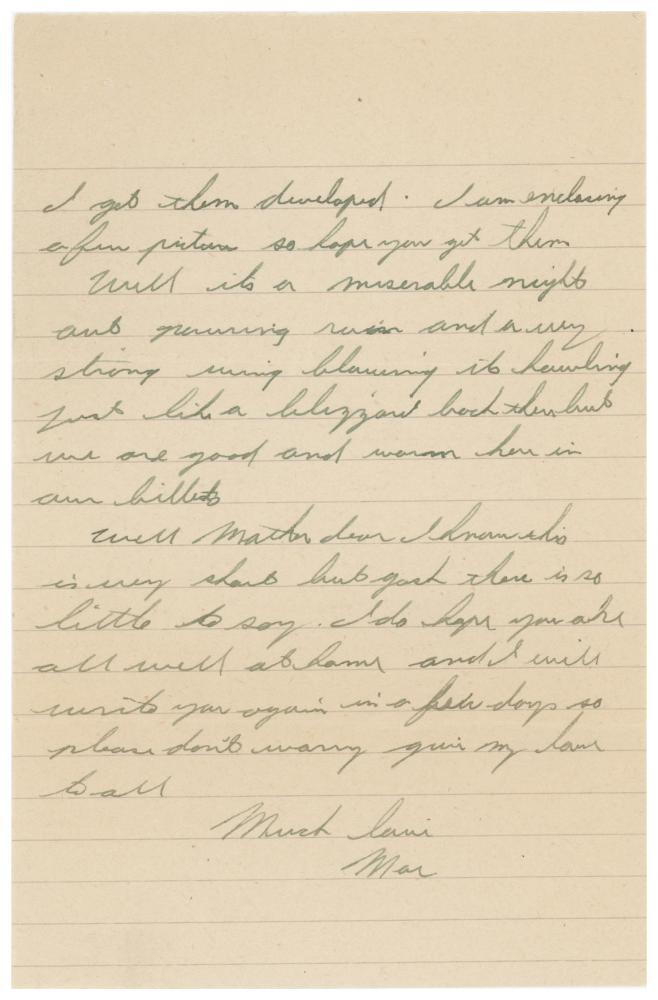 I get them developed. I am enclosing
a few pictures so hope you get them
Well its a miserable night
out pouring rain and a very
strong wing blowing its howling
just like a blizzard back there but
we are good and warm here in
our billets
Well Mother dear I know this
is very short but gosh there is so
little to say. I do hope you are
all well at home and I will
write you again in a few days so
please don't worry give my love
to all
Much love